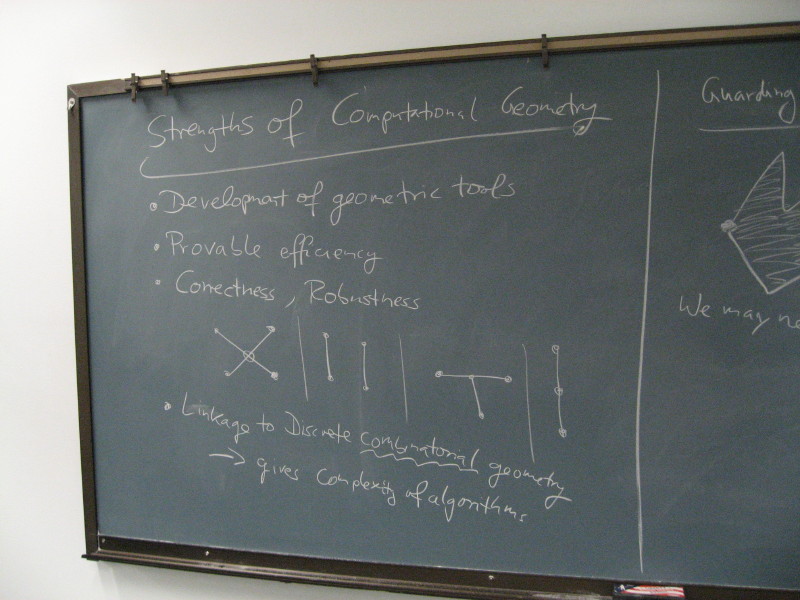 Strengths of Computational Geometry
• Development of geometric tools
• Provable efficiency
• Correctness, Robustness
• Linkage to Discrete combinatorial geometry
→ gives complexity of algorithms.
Guarding
We may ne